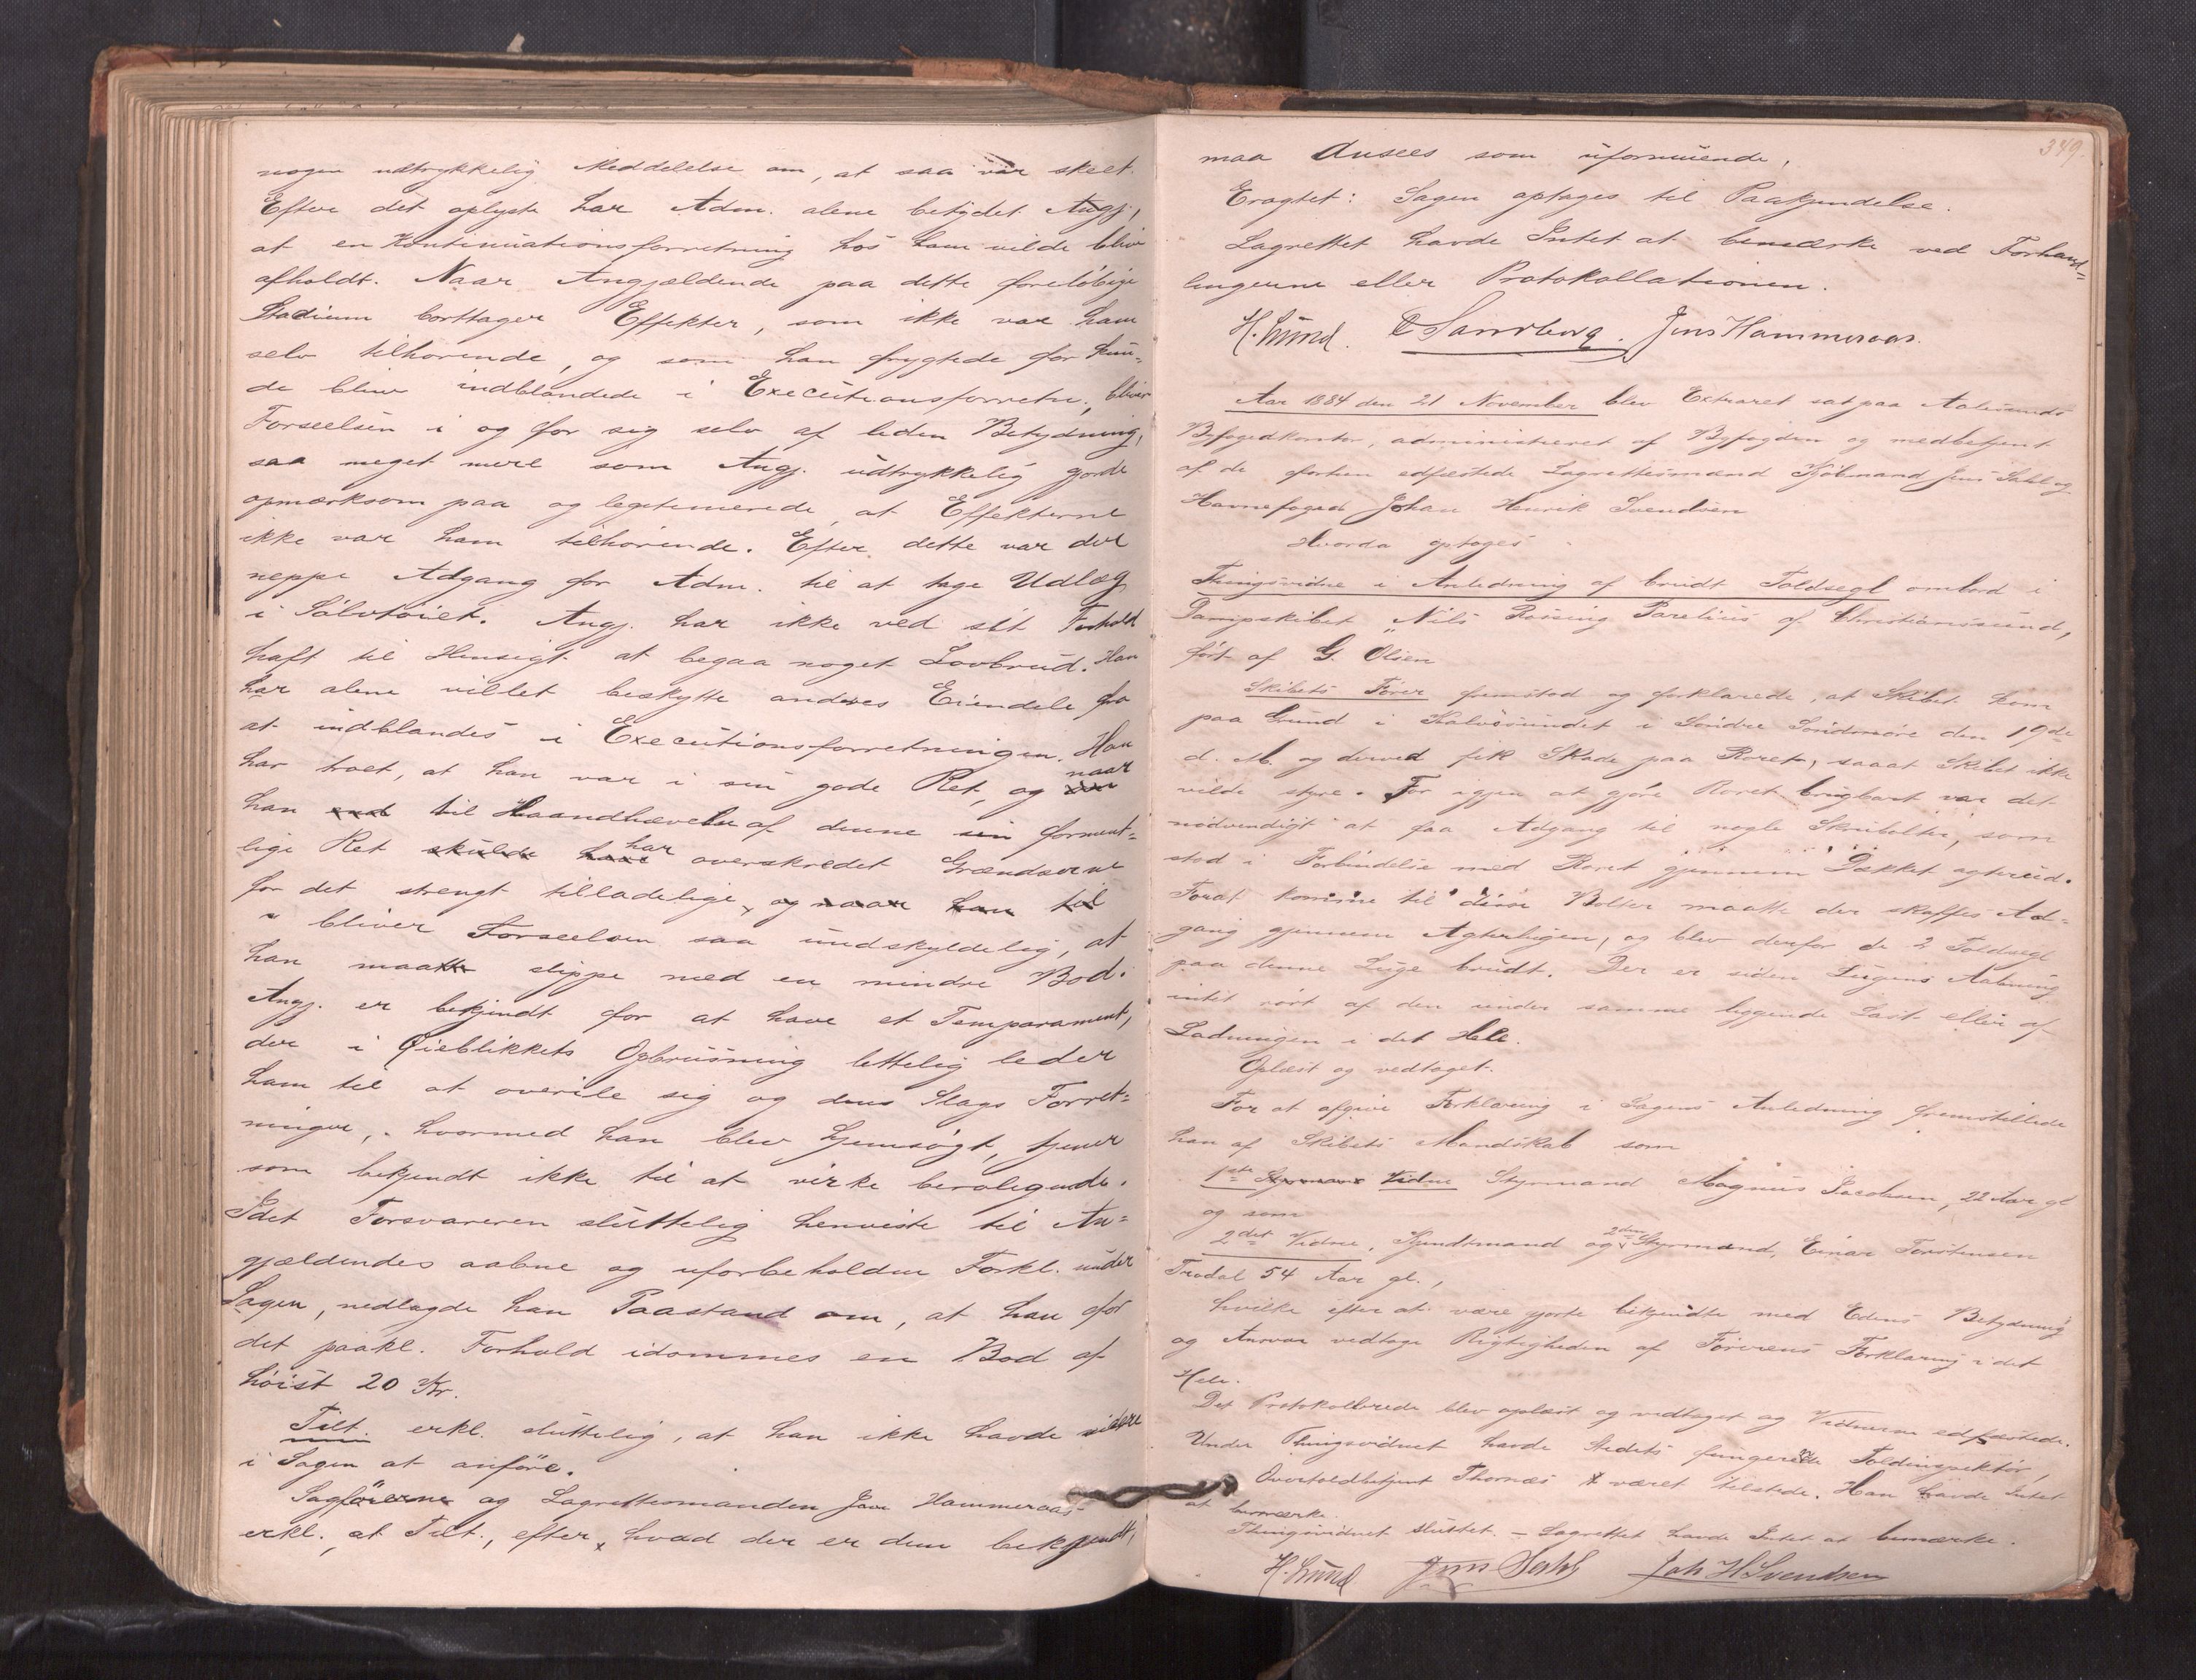 nogen udtrykkelig Meddelelse om, at saa var skeet.
Efter det oplyste har Adm. alene betydet Angj,
at en Kontinuationsforretning hos ham vilde blive
afholdt. Naar Angjældende paa dette foreløbige
Stadium borttager Effekter, som ikke var ham
selv tilhørende, og som han frygtede for kun-
de blive indblandede i Executionsforretn., bliver
Forseelsen i og for sig selv af liden Betydning,
saa meget mere som Angj. udtrykkelig gjorde
opmærksom paa og legitimerede, at Effekterne
ikke var ham tilhørende. Efter dette var der
neppe Adgang for Adm. til at tage Udlæg
i Sølvtøiet. Angj. har ikke ved sit Forhold
haft til Hensigt at begaa noget Lovbrud. Han
har alene villet beskytte andres Eiendele fra
at indblandes i Executionsforretningen. Han
har troet, at han var i sin gode Ret, og naar
han til Haandhævelse af denne sin forment-
lige Ret skulde have har overskredet Grændserne
for det strengt tilladelige, og naar han til
" bliver Forseelsen saa undskyldelig, at
han maatte slippe med en mindre Bod.
Angj. er bekjendt for at have et Temparament,
der i Øieblikkets Opbrusning lettelig leder
ham til at overile sig og dens Slags Forret-
ninger, hvormed han blev hjemsøgt, tjener
som bekjendt ikke til at virke beroligende.
Idet Forsvareren sluttelig henviste til An-
gjældendes aabne og uforbeholdne Forkl. under
Sagen, nedlagde han Paastand om, at han for
det paakl. Forhold idømmes en Bod af
høist 20 Kr.
Tilt. erkl. sluttelig, at han ikke havde videre
i Sagen at anføre.
Sagførerne og Lagrettesmanden Jens Hammeraas
erkl., at Tilt., efter hvad der er dem bekjendt,
349.
maa Ansees som uformuende.
Eragtet: Sagen optages til Paakjendelse.
Lagrettet havde Intet at bemærke ved Forhand-
lingerne eller Protokollationen.
H. Lund. C Sandberg. Jens Hammeraas.
Aar 1884 den 21 November blev Extraret sat paa Aalesunds
Byfogedkontor, administreret af Byfogden og medbetjent
af de forhen edfæstede Lagrettesmænd Kjøbmand Jens Dahl og
Havnefoged Johan Henrik Svendsen
Hvorda optoges
Thingsvidne i Anledning af brudt Toldsegl ombord i
Dampskibet "Nils Rossing Parelius af Christianssund,
ført af G. Olsen
Skibets Fører fremstod og forklarede, at Skibet kom
paa Grund i Kalvøsundet i Søndre Søndmøre den 19de
d. M. og derved fik Skade paa Roret, saaat Skibet ikke
vilde styre. For igjen at gjøre Roret brugbart var det
nødvendigt at faa Adgang til nogle Skruebolter, som
stod i Forbindelse med Roret gjennem Dækket agterud.
Forat komme til disse Bolter maatte der skaffes Ad-
gang gjennem Agterlugen, og blev derfor de 2 Toldsegl
paa denne Luge brudt. Der er siden Lugens Aabning
intet rørt af den under samme liggende Last eller af
Ladningen i det Hele.
Oplæst og vedtaget.
For at afgive Forklaring i Sagens Anledning fremstillede
han af Skibets Mandskab som
1ste Styrmand Vidne Styrmand Magnus Jacobsen, 22 Aar gl
og som
2det Vidne, Kjendtmand og 2den Styrmand, Einar Torstensen
Tradal 54 Aar gl.,
hvilke efter at være gjorte bekjendte med Edens Betydning
og Ansvar vedtoge Rigtigheden af Førerens Forklaring i det
Hele.
Det Protokollerede blev oplæst og vedtaget og Vidnerne edfæstede.
Under Thingsvidnet havde Stedets fungerende Toldinspektør,
Overtoldbetjent Thornæs været tilstede. Han havde Intet
at bemærke.
Thingsvidnet sluttet. – Lagrettet havde Intet at bemærke.
H. Lund Jens Dahl Joh H Svendsen